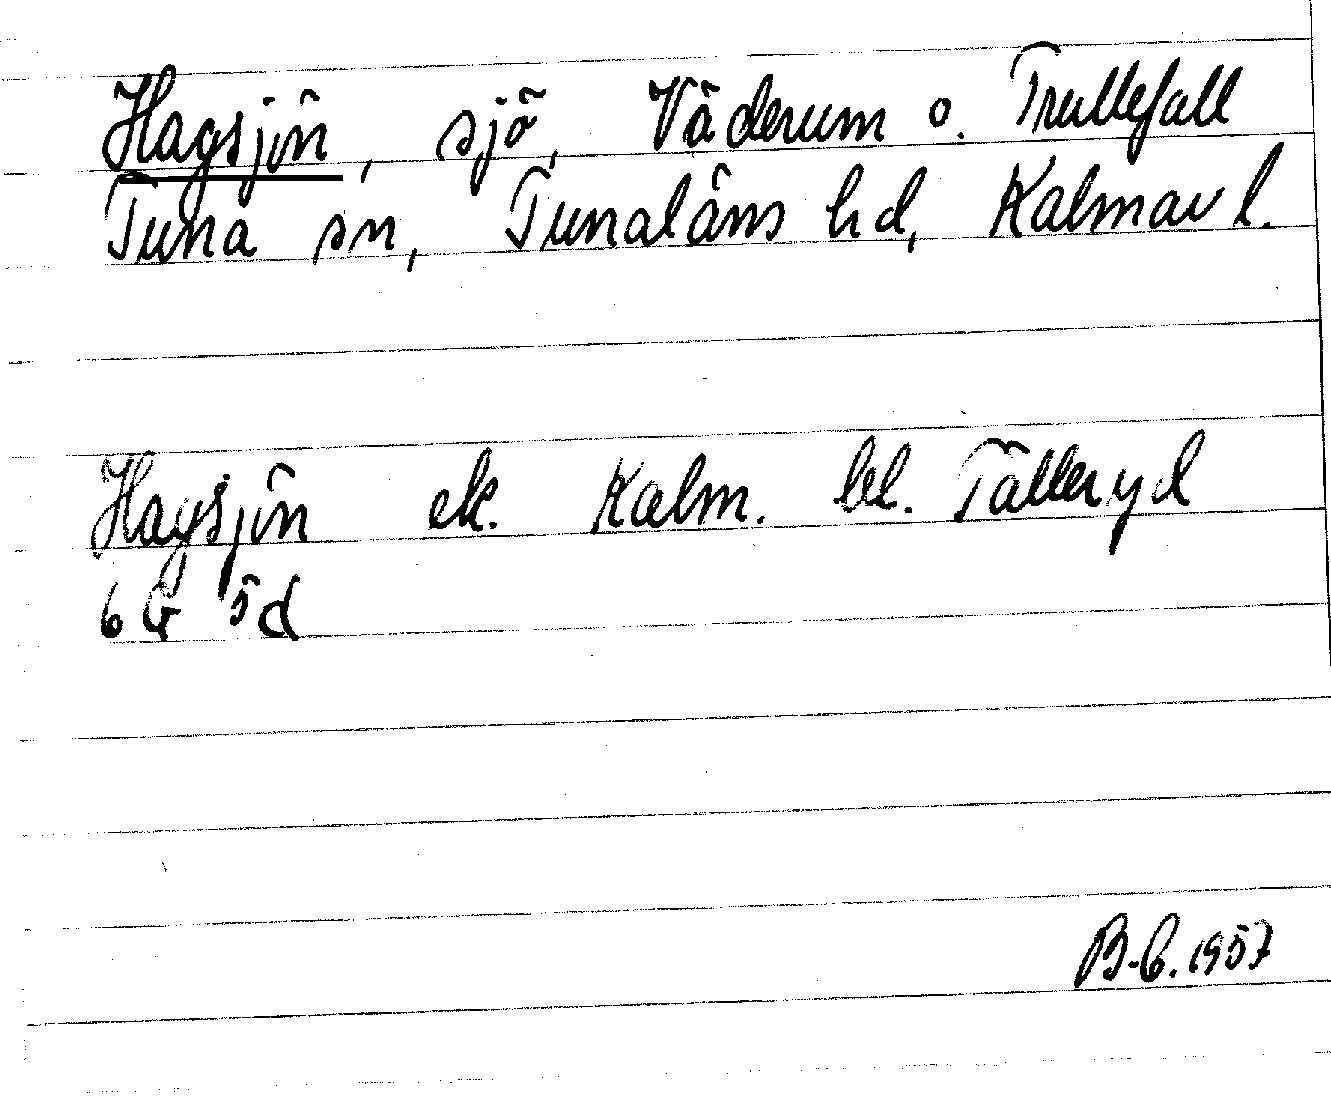 Hagsjön, sjö, Väderum o. Trullefall
Tuna sn, Tunaläns hd, Kalmar l.
Hagsjön ek. Kalm. bl. Tälleryd
6G 5d
B-C. 1957